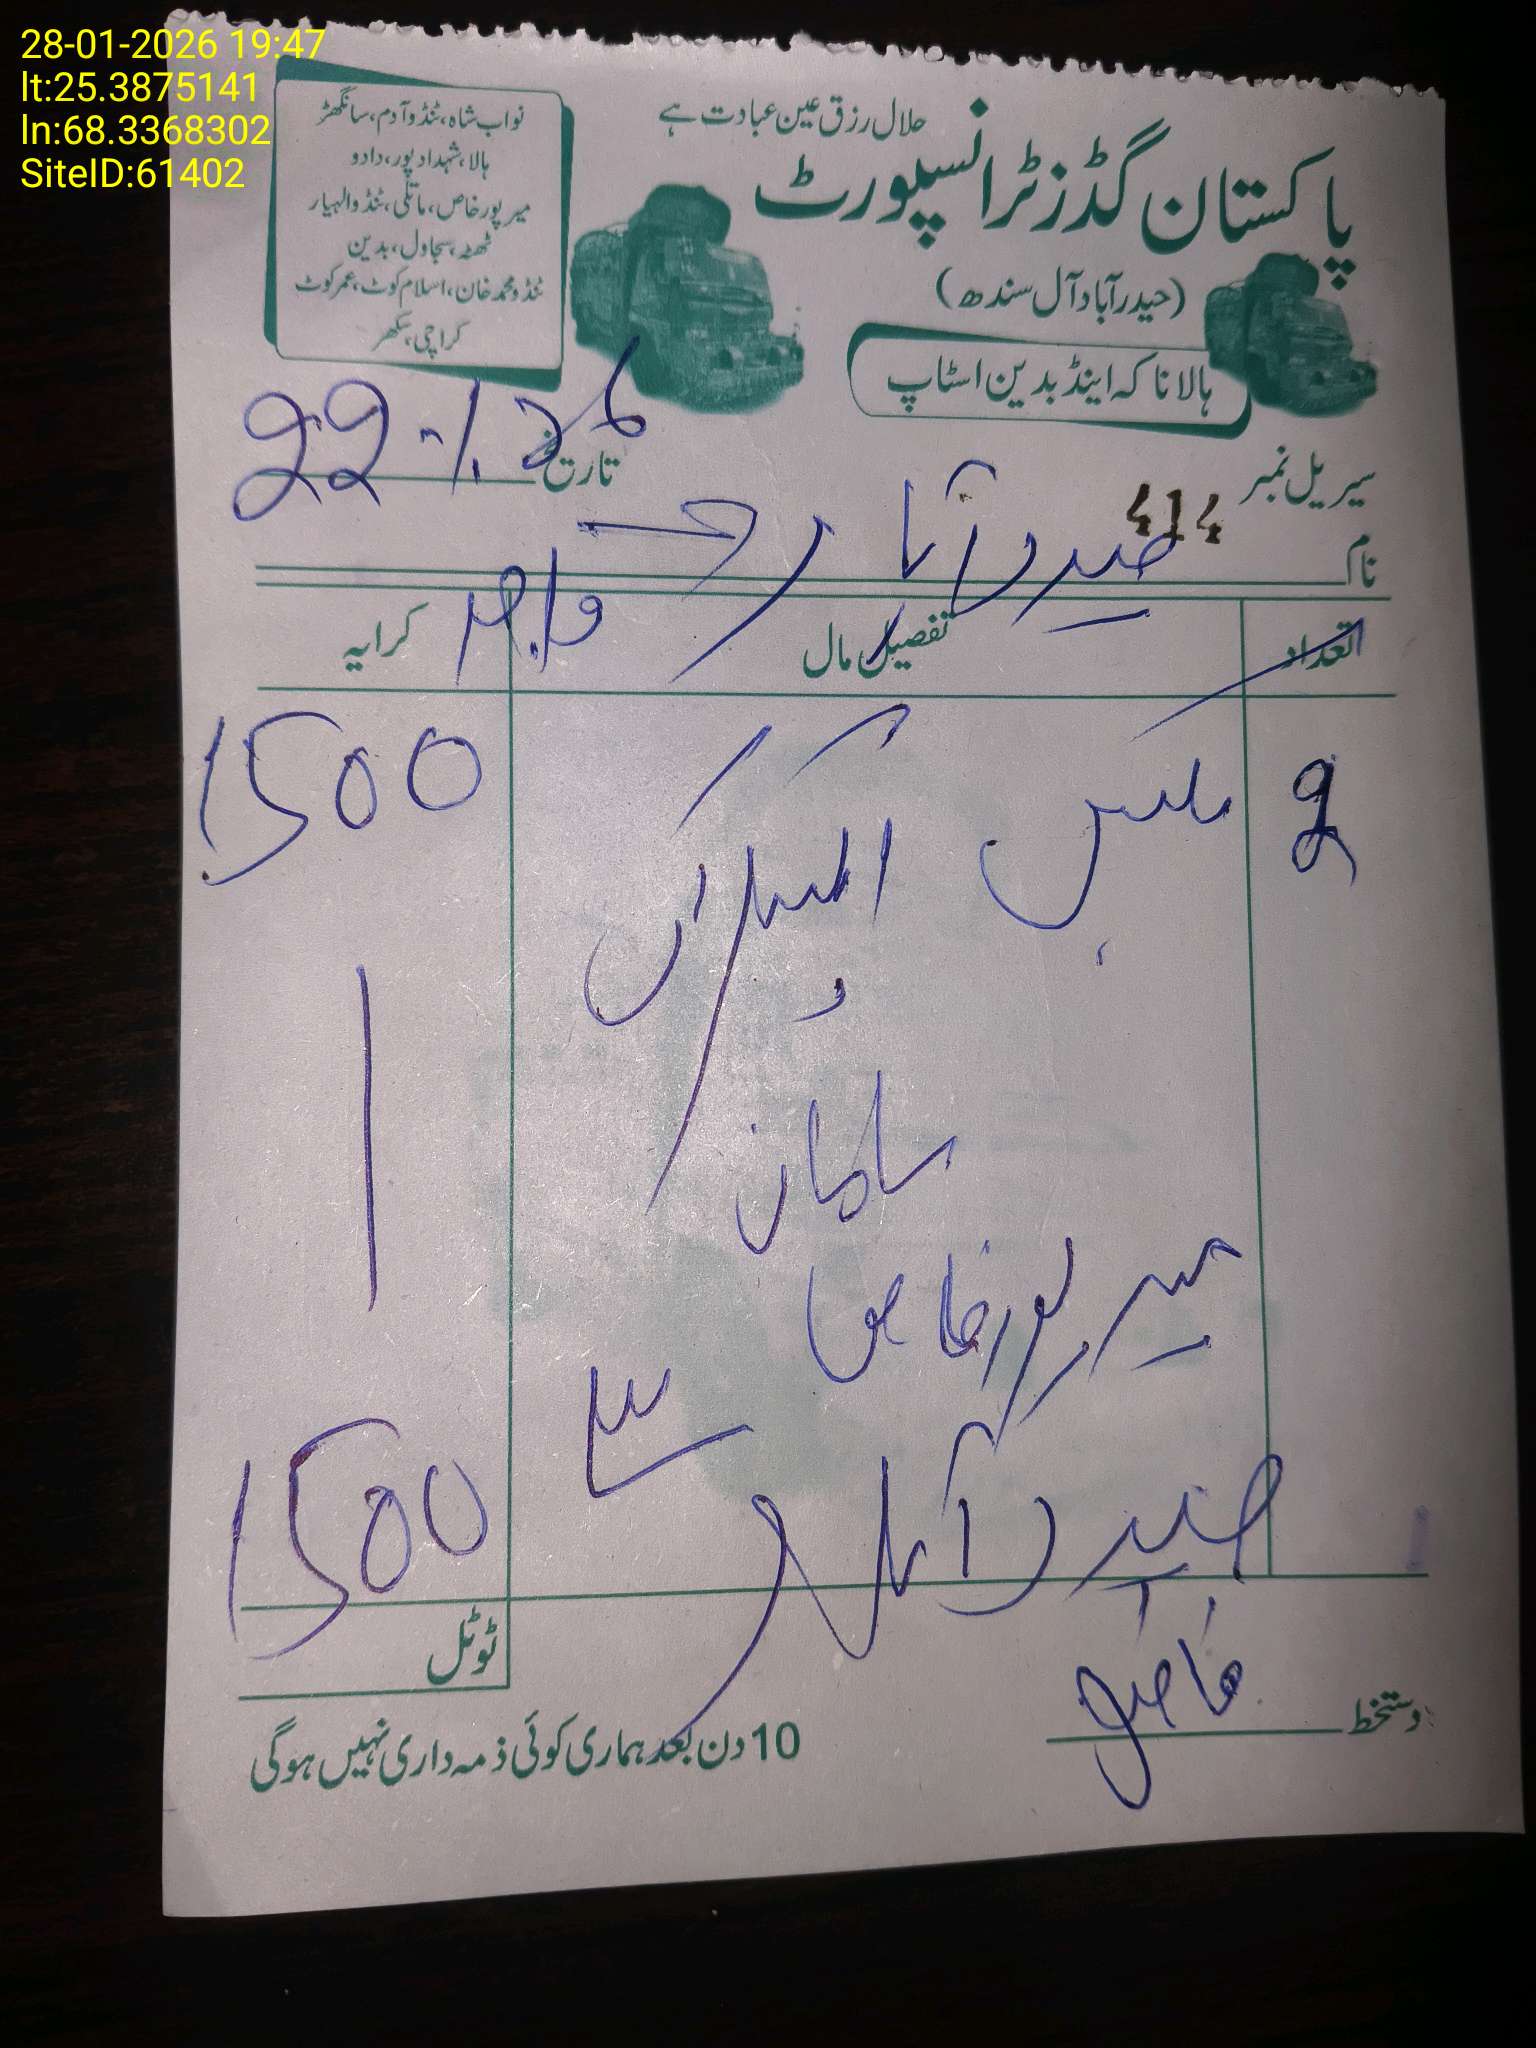 28-01-2026 19:47
lt:25.3875141
ln:68.3368302
SiteID:61402
حلال رزق عین عبادت ہے
پاکستان گڈز ٹرانسپورٹ
(حیدرآباد آل سندھ)
ہالا ناکہ اینڈ بدین اسٹاپ
نواب شاہ، ٹنڈو آدم، سانگھڑ
ہالا، شہدادپور، دادو
میرپورخاص، ماتلی، ٹنڈوالہیار
ٹھٹہ، سجاول، بدین
ٹنڈو محمد خان، اسلام کوٹ، عمرکوٹ
کراچی، سکھر
سیریل نمبر 414
تاریخ 22
نام حیدرآباد
تعداد تفصیل مال کرایہ
2 بکس 1500
سامان
میرپورخاص
سے
حیدرآباد
1500
ٹوٹل
دستخط
10 دن بعد ہماری کوئی ذمہ داری نہیں ہوگی